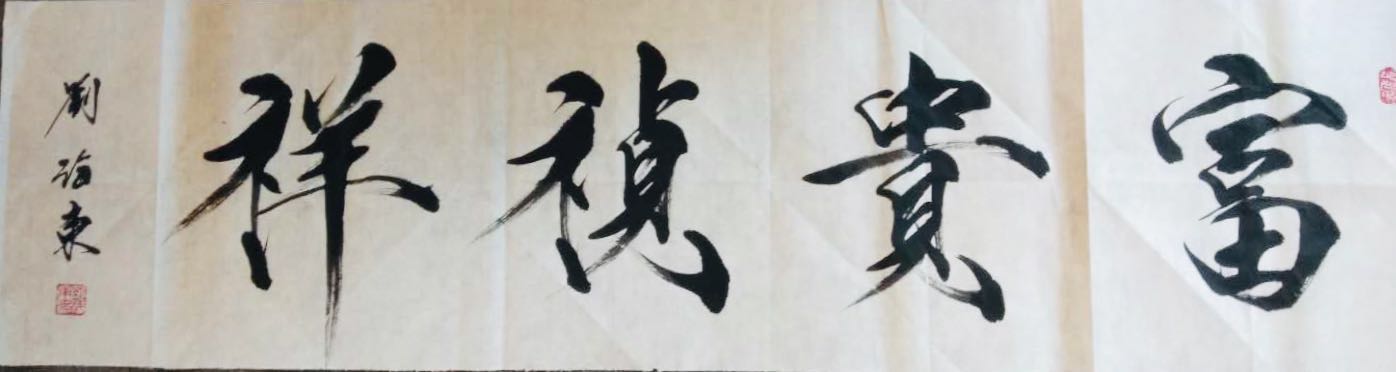 富貴禎祥
劉海東